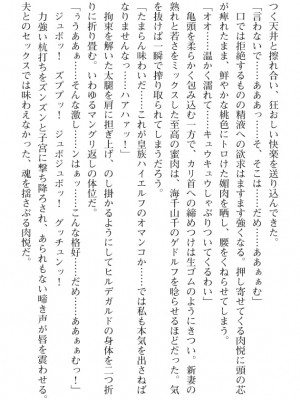 つく天井と擦れ合い、狂おしい快楽を送り込んできた。
「言わないで……あああっ、そ、そこは……だめ……ああぁぁむ」
口では拒絶するものの精液への欲求はますます強まる。押し寄せてくる肉悦に頭の芯
が痺れたまま、鮮やかな桃色にトロけた媚肉を晒し、腰をくねらせてしまう。
「オオ……温かく濡れて……キュウキュウしゃぶりついてくるわい」
亀頭を柔らかく包み込む一方で、カリ首への締めつけは生ゴムのようにきつい。新妻の
熟れと若さをミックスした至高の蜜肉は、海千山千のゲドルフを唸らせるほどだった。気
を抜けば一瞬で搾り取られてしまうだろう。
「たまらん味わいだ……これが皇族ハイエルフのオマンコか……では私も本気を出さねば
なりませんなっ……アハァッ！」
拘束を解いた太腿を肩に担ぎ上げ、のし掛かるようにしてヒルデガルドの身体を二つ折
りに折り畳む。いわゆるマングリ返しの体位だ。
「うぅああぁ……そんな激し……ンはぁぁ……こんな格好……だめ……ああぁぁむっ！」
ジュボッ！　ズブブッ！　ジュボジュボッ！　グッチュンッ！
力強い杭打ちをズンズンと子宮に撃ち降ろされ、あられもない啼き声が唇を震わせる。
夫とのセックスでは味わえなかった、魂を揺さぶる肉悦だ。